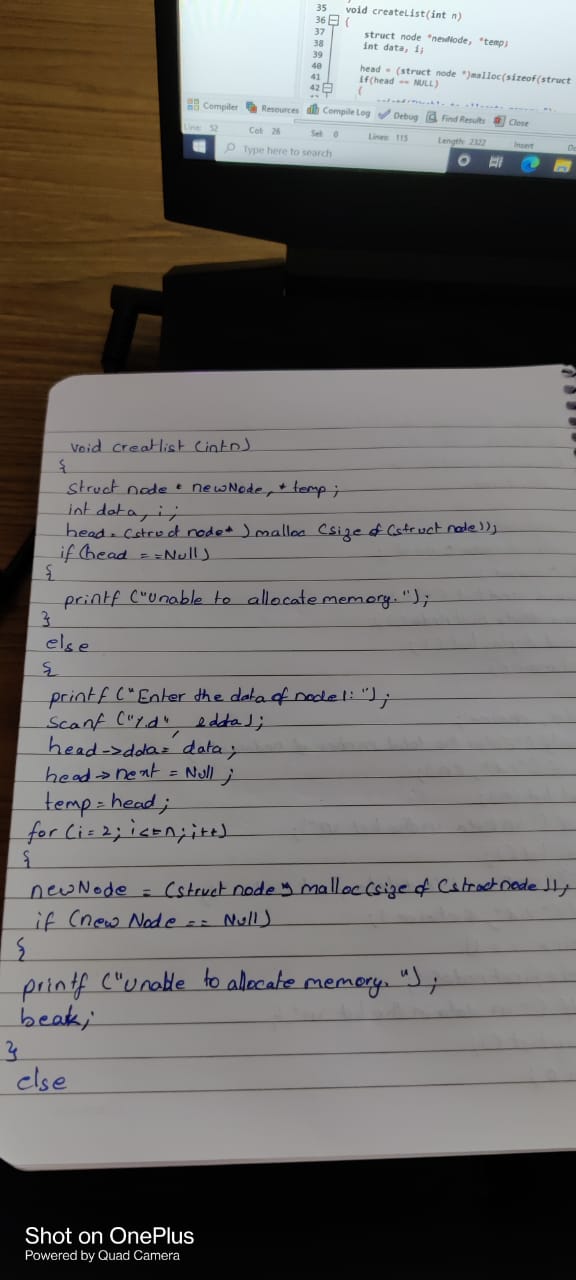 35 void createList(int n)
36 {
37 struct node *newNode, *temp;
38 int data, i;
39
40 head = (struct node *)malloc(sizeof(struct
41 if(head == NULL)
42 {
Compiler Resources Compile Log Debug Find Results Close
Line: 52 Col: 26 Sel: 0 Lines: 115 Length: 2322 Insert
Type here to search
void creatlist (intn)
{
struct node * newNode, * temp;
int data, i;
head = (struct node* ) malloc (size of (struct node));
if (head = =Null)
{
printf ("Unable to allocate memory.");
}
else
{
printf ("Enter the data of node 1: ");
Scanf ("%d",
head ->data= data;
head -> next = Null;
temp = head;
for (i = 2; i<=n; i++)
{
newNode = (struct node *) malloc (size of (struct node ));
if (new Node == Null)
{
printf ("Unable to allocate memory. ");
beak;
}
else
Shot on OnePlus
Powered by Quad Camera